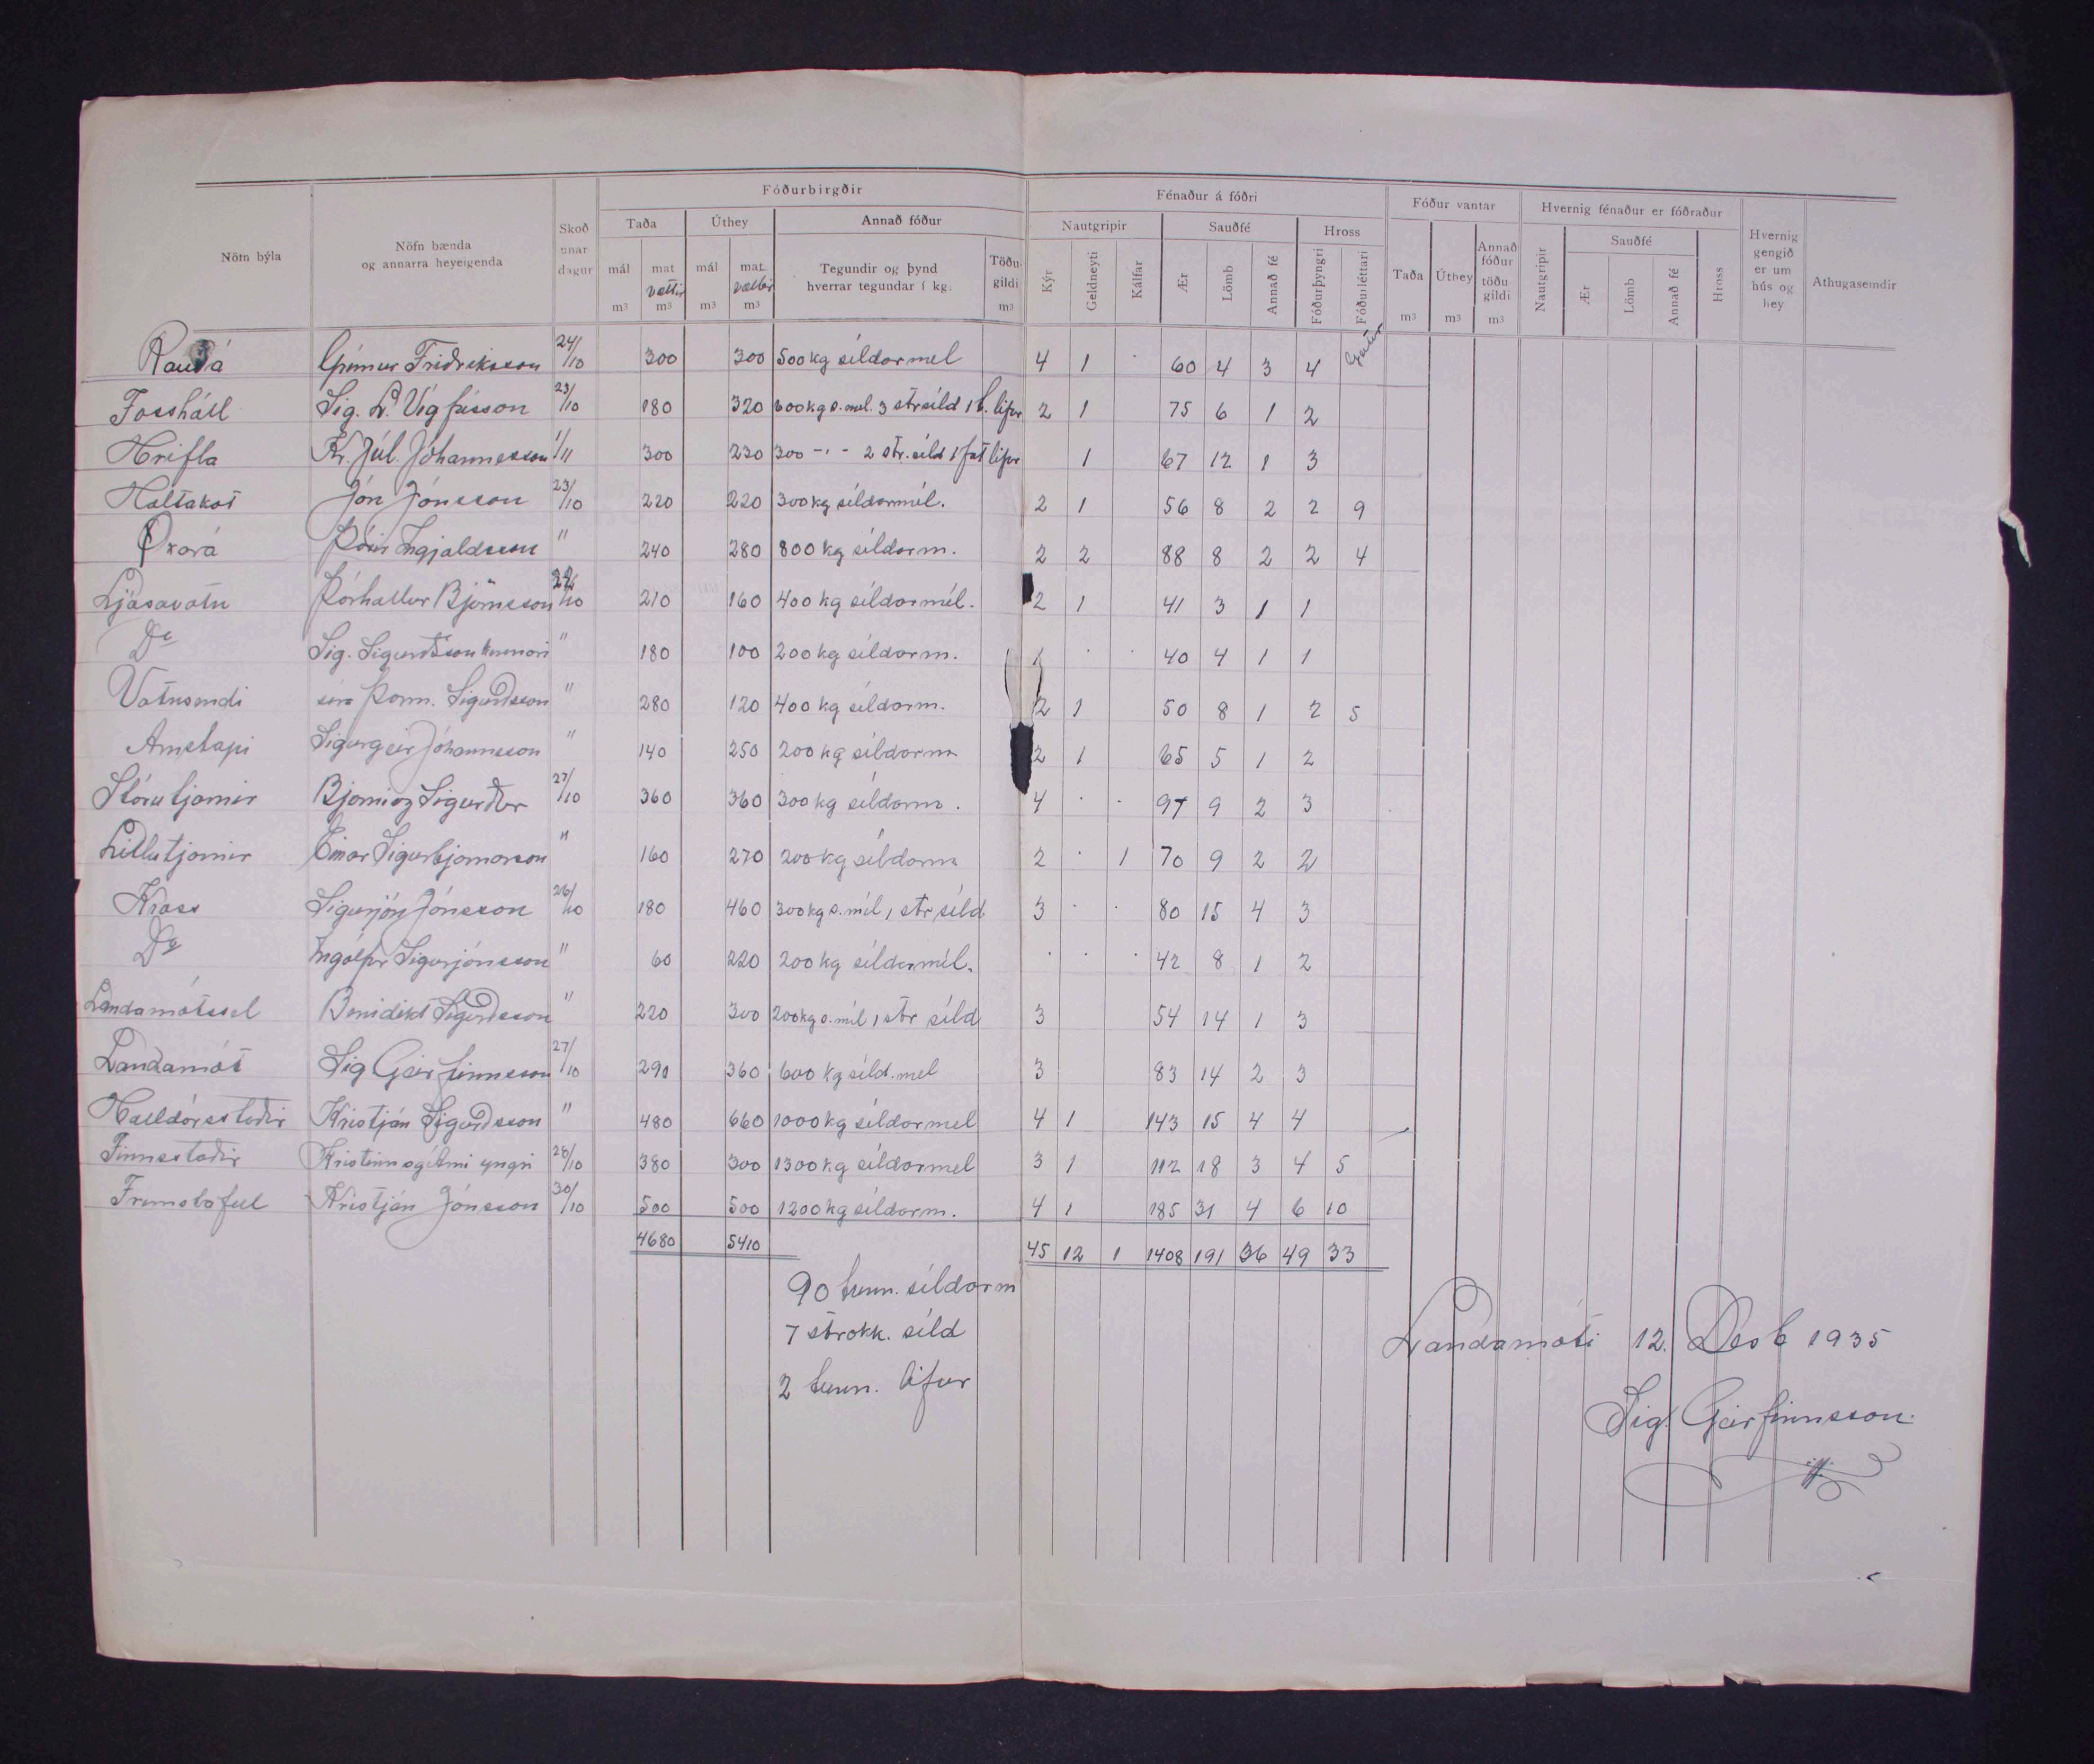 Fóðurbirgðir Fénaður á fóðri Fóður vantar Hvernig fénaður er fóðraður
Nöfn býla Nöfn bænda og annarra heyeigenda Skoðunar dagur Taða Úthey Annað fóður Nautgripir Sauðfé Hross Taða Úthey Annað fóður töðugildi Nautgripir Sauðfé Hross Hvernig gengið er um hús og hey Athugasemdir
mál m³ mat vættir m³ mál m³ mat vættir m³ Tegundir og þynd hverrar tegundar í kg. Töðugildi m³ Kýr Geldneyti Kálfar Ær Lömb Annað fé Fóðurþyngri Fóðurléttari m³ m³ m³ Ær Lömb Annað fé
Rauðá Grímur Friðriksson 24/10 300 300 500 kg síldarmel 4 1 · 60 4 3 4
Fosshóll Sig. L. Vigfússon 23/10 180 320 600 kg s.mel. 3 str síld 1 t. lifur 2 1 75 6 1 2
Hrifla Kr. Júl. Jóhannesson 1/11 300 230 300 -"- 2 str. síld 1 fat lifur 1 67 12 1 3
Holtakot Jón Jónsson 23/10 220 220 300 kg síldarmél. 2 1 56 8 2 2 9
Öxará Þórir Ingjaldsson " 240 280 800 kg síldarm. 2 2 88 8 2 2 4
Ljósavatn Þórhallur Björnsson 210 160 400 kg síldarmél. 2 1 41 3 1 1
Do Sig. Sigurðsson " 180 100 200 kg síldarm. 1 · · 40 4 1 1
Vatnsendi séra Þorm. Sigurðsson " 280 120 400 kg síldarm. 2 1 50 8 1 2 5
Arnstapi Sigurgeir Jóhannsson " 140 250 200 kg síldarm 2 1 65 5 1 2
Stórutjarnir Bjarni og Sigurður 27/10 360 360 300 kg síldarm. 4 · · 97 9 2 3
Litlutjarnir Einar Sigurbjarnarson " 160 270 200 kg síldarm 2 · 1 70 9 2 2
Kross Sigurjón Jónsson 26/10 180 460 300 kg s.mél 1 str síld 3 · · 80 15 4 3
Do Ingólfur Sigurjónsson " 60 220 200 kg síldarmél. · · · 42 8 1 2
Landamótssel Benidikt Sigurðsson " 220 300 200 kg s.mél 1 str síld 3 54 14 1 3
Landamót Sig Geirfinnsson 27/10 290 360 600 kg síld.mel 3 83 14 2 3
Halldórsstaðir Kristján Sigurðsson " 480 660 1000 kg síldarmel 4 1 143 15 4 4
Finnsstaðir Kristinn og Árni yngri 28/10 380 300 1300 kg síldarmel 3 1 112 18 3 4 5
Fremstafell Kristján Jónsson 30/10 500 500 1200 kg síldarm. 4 1 185 31 4 6 10
4680 5410 45 12 1 1408 191 36 49 33
90 tunn. síldarm
7 strokk. síld
2 tunn. lifur
Landamóti 12. Desb 1935
Sig. Geirfinnsson.